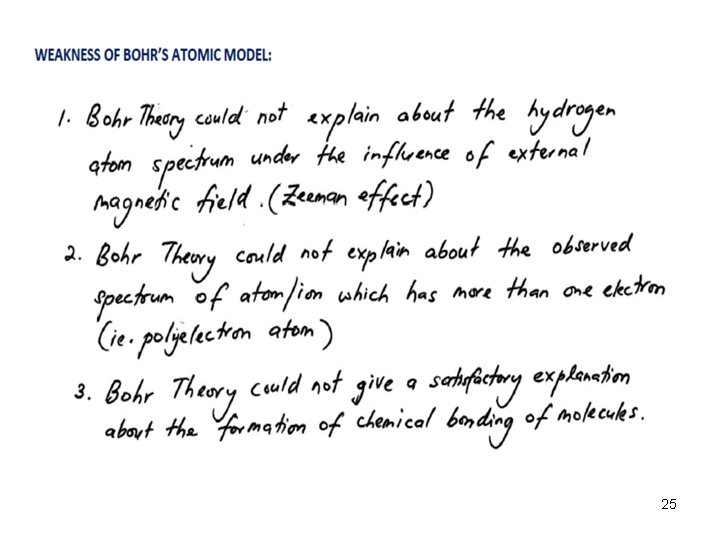 WEAKNESS OF BOHR'S ATOMIC MODEL:
1. Bohr Theory could not explain about the hydrogen
atom spectrum under the influence of external
magnetic field. (Zeeman effect)
2. Bohr Theory could not explain about the observed
spectrum of atom/ion which has more than one electron
(ie. polyelectron atom)
3. Bohr Theory could not give a satisfactory explanation
about the formation of chemical bonding of molecules.
25